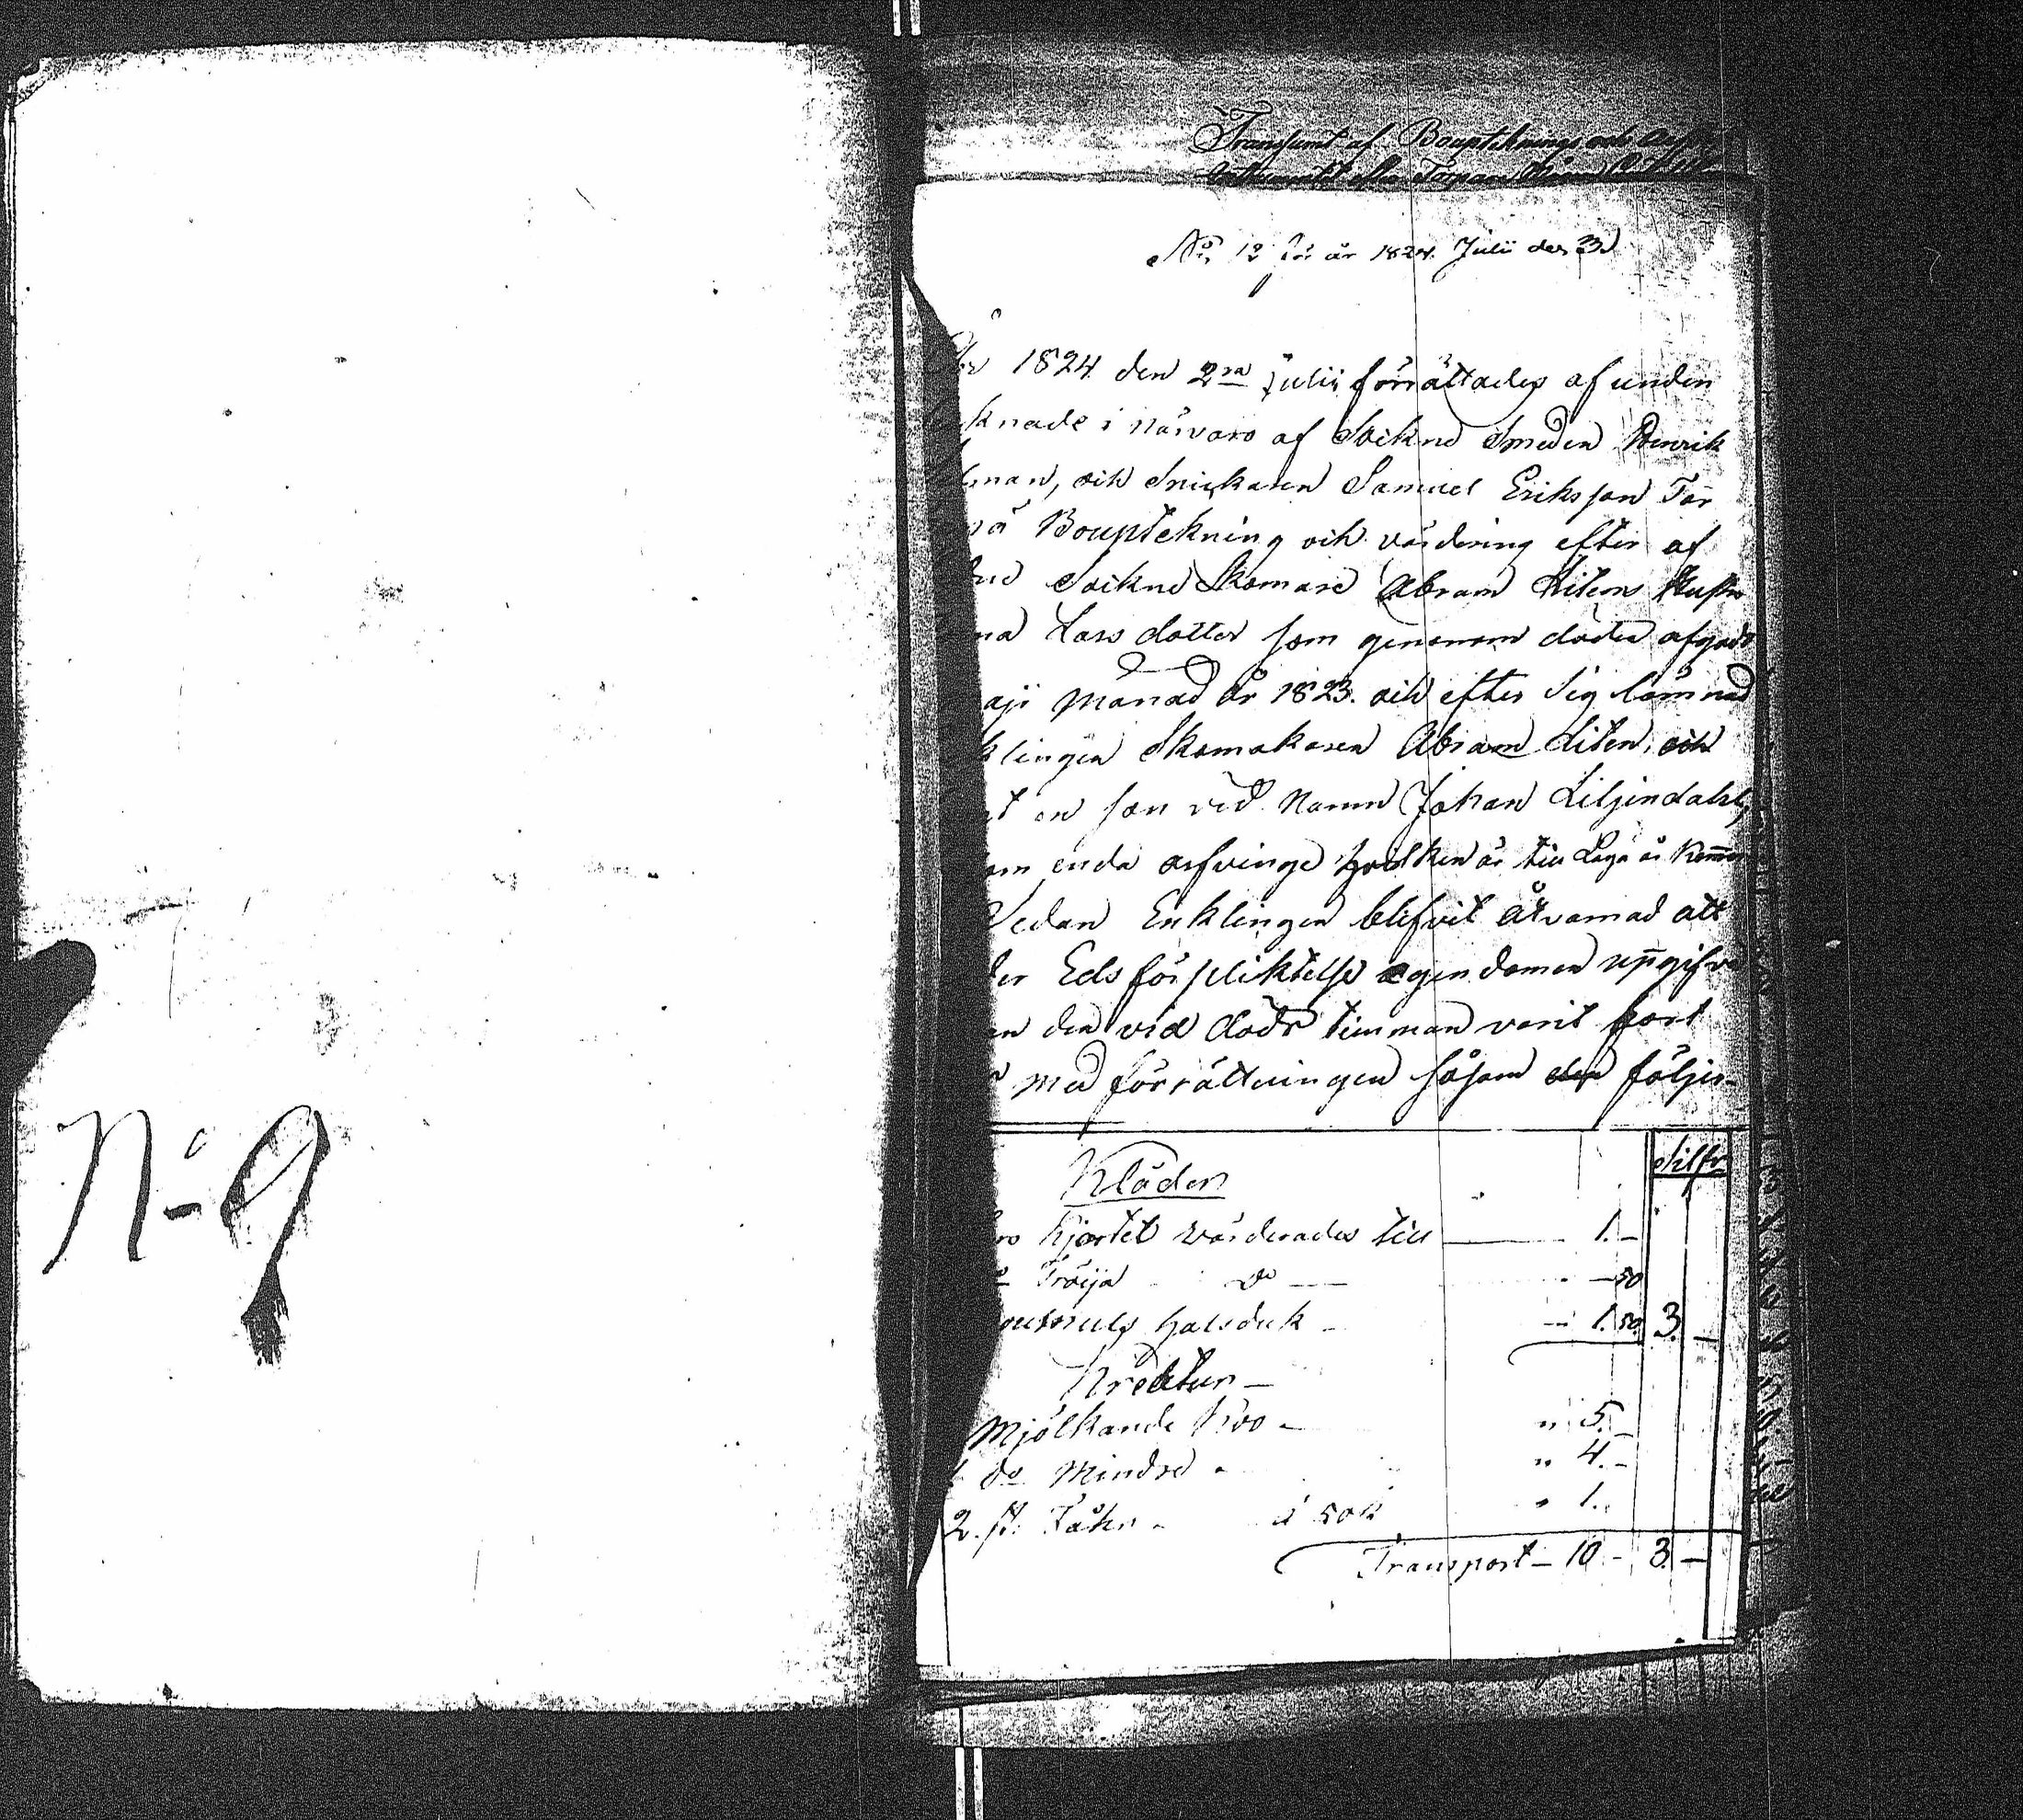 N:o 9
Transumt af Boupteknings och
efter
No 12 för år 1824. Julii den 3
År 1824 den 2ra Julii förrättades af under
knade i närvaro af Sockne Smeden Henrik
man, och Snickaren Samuel Eriksson Tor
Bouptekning och värdering efter af
Sockne Skomare Abram Litens Hustru
na Lars dotter som genonom döden afgådt
aji Månad år 1823. och efter sig lämnad
klingen Skomakaren Abram Liten, och
t en son vid Namn Johan Liljendahl,
om enda arfvinge hvilken är till Laga år Kommen
Sedan Enklingen blifvit åtvarnad att
der Eds förpliktelse egendomen uppgifva
an den vid döds timman varit fort
med förrättningen såsom den följer
Silfr
Kläder
Kjortel värderades till 1.–
Tröija do – 50
halsduk – 1.50 3. –
Kreatur –
Mjölkande Koo – " 5. –
1 do Mindre – " 4. –
2. st: Fåhr – á 50 k " 1.
Transport – 10 – 3. –